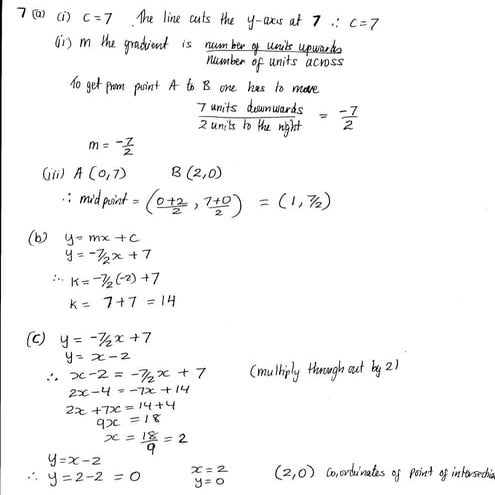 7 (a) (i) c = 7 The line cuts the y-axis at 7 ∴ c = 7
(ii) m the gradient is number of units upwards / number of units across
To get from point A to B one has to move
7 units downwards / 2 units to the right = -7/2
m = -7/2
(iii) A (0,7) B (2,0)
∴ midpoint = (0+2/2 , 7+0/2) = (1, 7/2)
(b) y = mx + c
y = -7/2x + 7
∴ k = -7/2(-2) + 7
k = 7+7 = 14
(c) y = -7/2x + 7
y = x - 2
∴ x - 2 = -7/2x + 7 (multiply through out by 2)
2x - 4 = -7x + 14
2x + 7x = 14 + 4
9x = 18
x = 18/9 = 2
y = x - 2
∴ y = 2 - 2 = 0 x = 2 y = 0 (2,0) Co,ordinates of point of intersectio